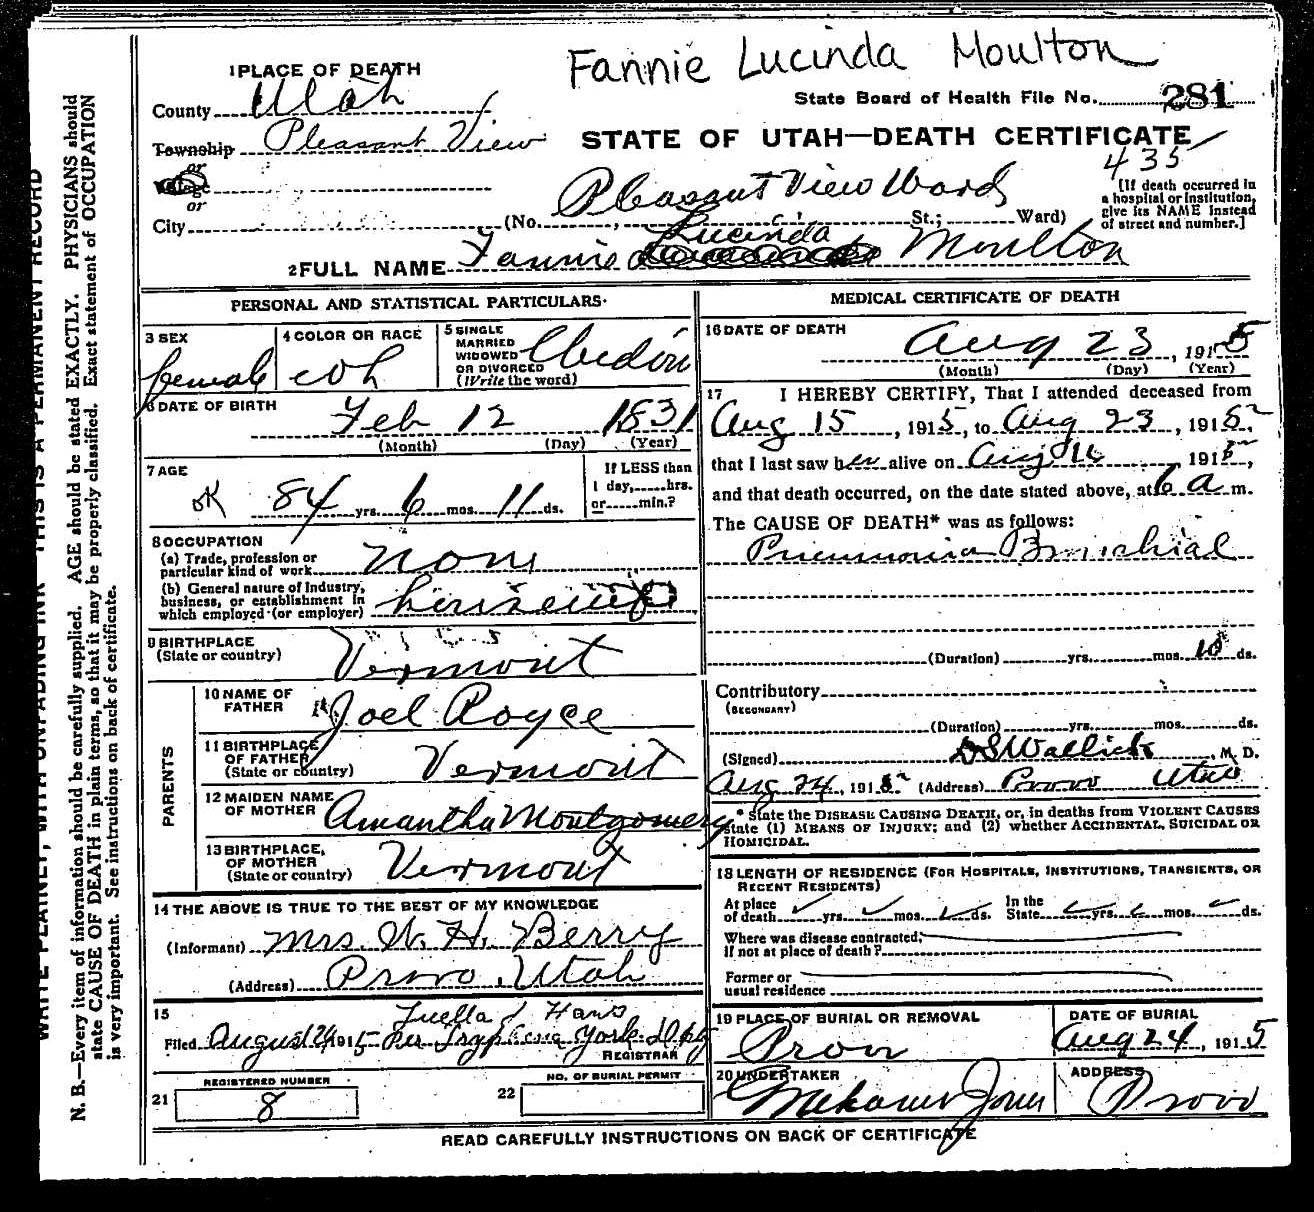 Fannie Lucinda Moulton
State Board of Health File No. 281
STATE OF UTAH—DEATH CERTIFICATE
435
1 PLACE OF DEATH
County Utah
Township Pleasant View
or
or
City
(No. Pleasant View Ward St.; Ward)
[If death occurred in
a hospital or institution,
give its NAME instead
of street and number.]
2 FULL NAME Fannie Lucinda Moulton
PERSONAL AND STATISTICAL PARTICULARS.
3 SEX
female
4 COLOR OR RACE
wh
5 SINGLE
MARRIED
WIDOWED
OR DIVORCED
(Write the word)
6 DATE OF BIRTH
Feb 12 1831
(Month) (Day) (Year)
7 AGE
OK 84 yrs. 6 mos. 11 ds.
If LESS than
1 day,......hrs.
or......min.?
8 OCCUPATION
(a) Trade, profession or
particular kind of work none
(b) General nature of Industry,
business, or establishment in
which employed (or employer) housewife
9 BIRTHPLACE
(State or country) Vermont
PARENTS
10 NAME OF
FATHER Joel Royce
11 BIRTHPLACE
OF FATHER
(State or country) Vermont
12 MAIDEN NAME
OF MOTHER Amantha Montgomery
13 BIRTHPLACE,
OF MOTHER
(State or country) Vermont
14 THE ABOVE IS TRUE TO THE BEST OF MY KNOWLEDGE
(Informant) Mrs. W. H. Berry
(Address) Provo, Utah
15
Luella
Filed August 24 1915 Per York
REGISTRAR
REGISTERED NUMBER
21 8
NO. OF BURIAL PERMIT
22
MEDICAL CERTIFICATE OF DEATH
16 DATE OF DEATH
Aug 23, 1915
(Month) (Day) (Year)
17 I HEREBY CERTIFY, That I attended deceased from
Aug 15, 1915, to Aug 23, 1915,
that I last saw her alive on Aug 1915,
and that death occurred, on the date stated above, at 6 a m.
The CAUSE OF DEATH* was as follows:
Pneumonia Bronchial
(Duration) yrs. mos. 10 ds.
Contributory
(SECONDARY)
(Duration) yrs. mos. ds.
(Signed) D S Wallick, M. D.
Aug 24, 1915 (Address) Provo Utah
* State the DISEASE CAUSING DEATH, or, in deaths from VIOLENT CAUSES
state (1) MEANS OF INJURY; and (2) whether ACCIDENTAL, SUICIDAL OR
HOMICIDAL.
18 LENGTH OF RESIDENCE (FOR HOSPITALS, INSTITUTIONS, TRANSIENTS, OR
RECENT RESIDENTS)
At place
of death yrs. mos. ds.
In the
State yrs. mos. ds.
Where was disease contracted,
If not at place of death?
Former or
usual residence
19 PLACE OF BURIAL OR REMOVAL
Provo
DATE OF BURIAL
Aug 24, 1915
20 UNDERTAKER
Jones
ADDRESS
Provo
READ CAREFULLY INSTRUCTIONS ON BACK OF CERTIFICATE
WRITE PLAINLY, WITH UNFADING INK—THIS IS A PERMANENT RECORD
N. B.—Every item of information should be carefully supplied. AGE should be stated EXACTLY. PHYSICIANS should
state CAUSE OF DEATH in plain terms, so that it may be properly classified. Exact statement of OCCUPATION
is very important. See instructions on back of certificate.